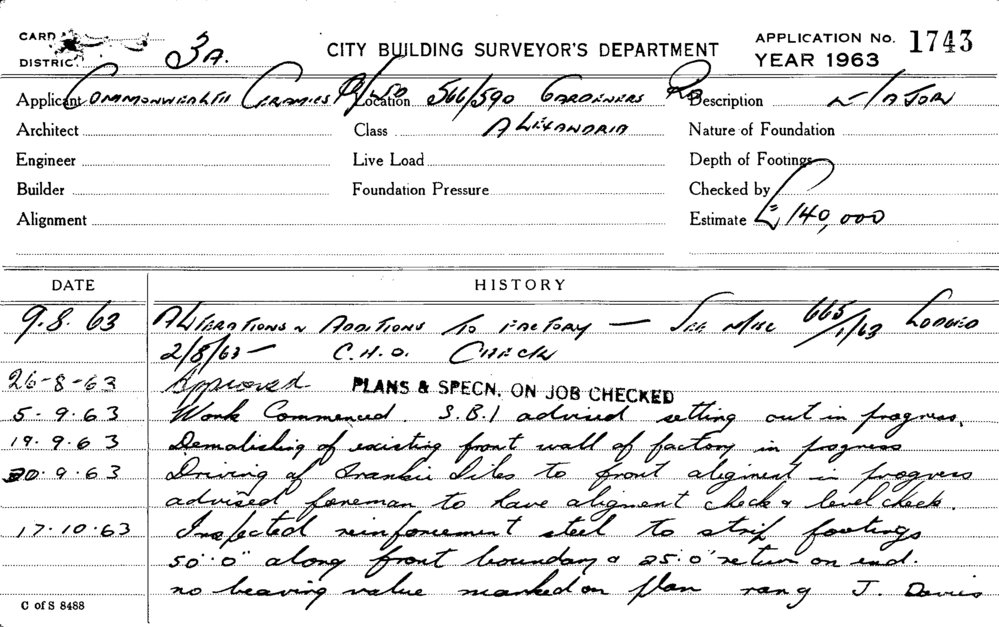 CARD
DISTRICT 3A.
CITY BUILDING SURVEYOR'S DEPARTMENT
APPLICATION No. 1743
YEAR 1963
Applicant COMMONWEALTH CERAMICS P/L Location 566/590 GARDENERS RD Description
Architect Class ALEXANDRIA Nature of Foundation
Engineer Live Load Depth of Footings
Builder Foundation Pressure Checked by
Alignment Estimate £140,000
DATE HISTORY
9.8.63 ALTERATIONS & ADDITIONS TO FACTORY — SEE MISC 665/1/63 LODGED
2/8/63 — C.H.O. CHECK
26-8-63 Approved PLANS & SPECN. ON JOB CHECKED
5.9.63 Work Commenced. S.B.I advised setting out in progress.
19.9.63 Demolishing of existing front wall of factory in progress
30.9.63 Driving of Frankie Piles to front aligment in progress
advised foreman to have aligment check & level check.
17.10.63 Inspected reinforcement steel to strip footings
50'.0" along front boundary & 25'.0" return on end.
no bearing value marked on plan rang J. Davis
C of S 8488